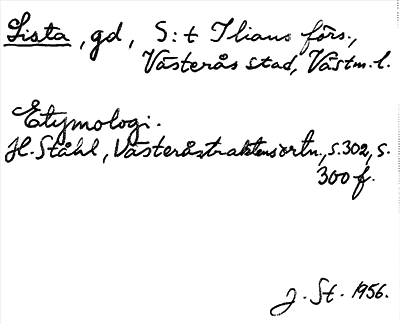 Lista, gd, S:t Ilians förs.,
Västerås stad, Västm. l.
Etymologi.
H. Ståhl, Västeråstraktens ortn., s. 302, s.
300 f.
J. St. 1956.